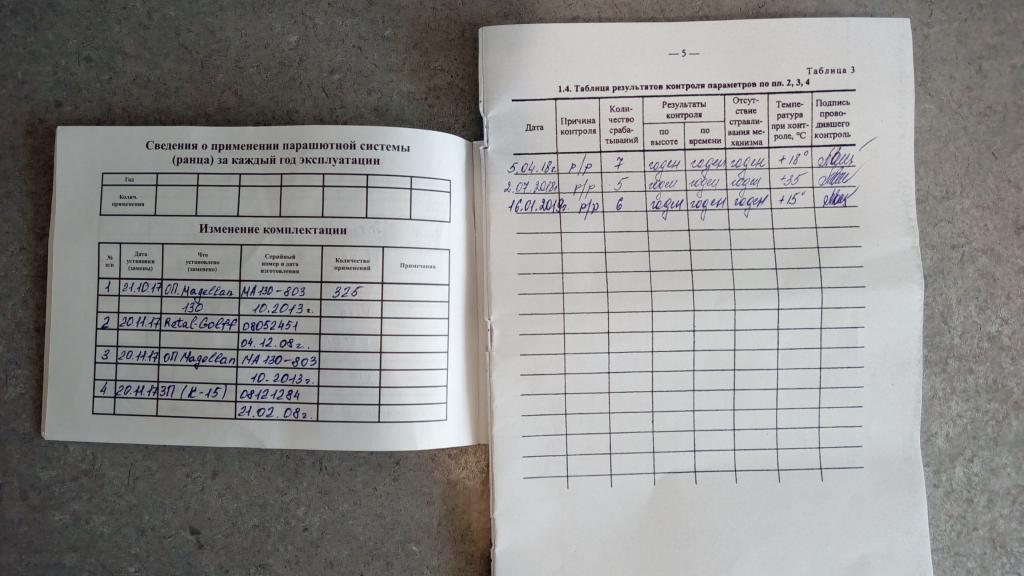 Сведения о применении парашютной системы
(ранца) за каждый год эксплуатации
Год
Колич. применения
Изменение комплектации
№ п/п Дата установки (замены) Что установлено (заменено) Серийный номер и дата изготовления Количество применений Примечания
1 21.10.17 ОП. Magellan МА 130-803 325
130 10.2013 г.
2 20.11.17 08052451
04.12.08 г.
3 20.11.17 ОП Magellan МА 130-803
10.2013 г.
4 20.11.17 ЗП (К-15) 08121284
21.02.08 г.
— 5 —
Таблица 3
1.4. Таблица результатов контроля параметров по пп. 2, 3, 4
Дата Причина контроля Коли-чество сраба-тываний Результаты контроля по высоте по времени Отсут-ствие стравли-вания ме-ханизма Темпе-ратура при конт-роле, °С Подпись прово-дившего контроль
5.04.18г. р/р 7 годен годен годен +18°
2.07.2018г р/р 5 годен годен годен +35
16.01.2019г. р/р 6 годен годен годен +15°